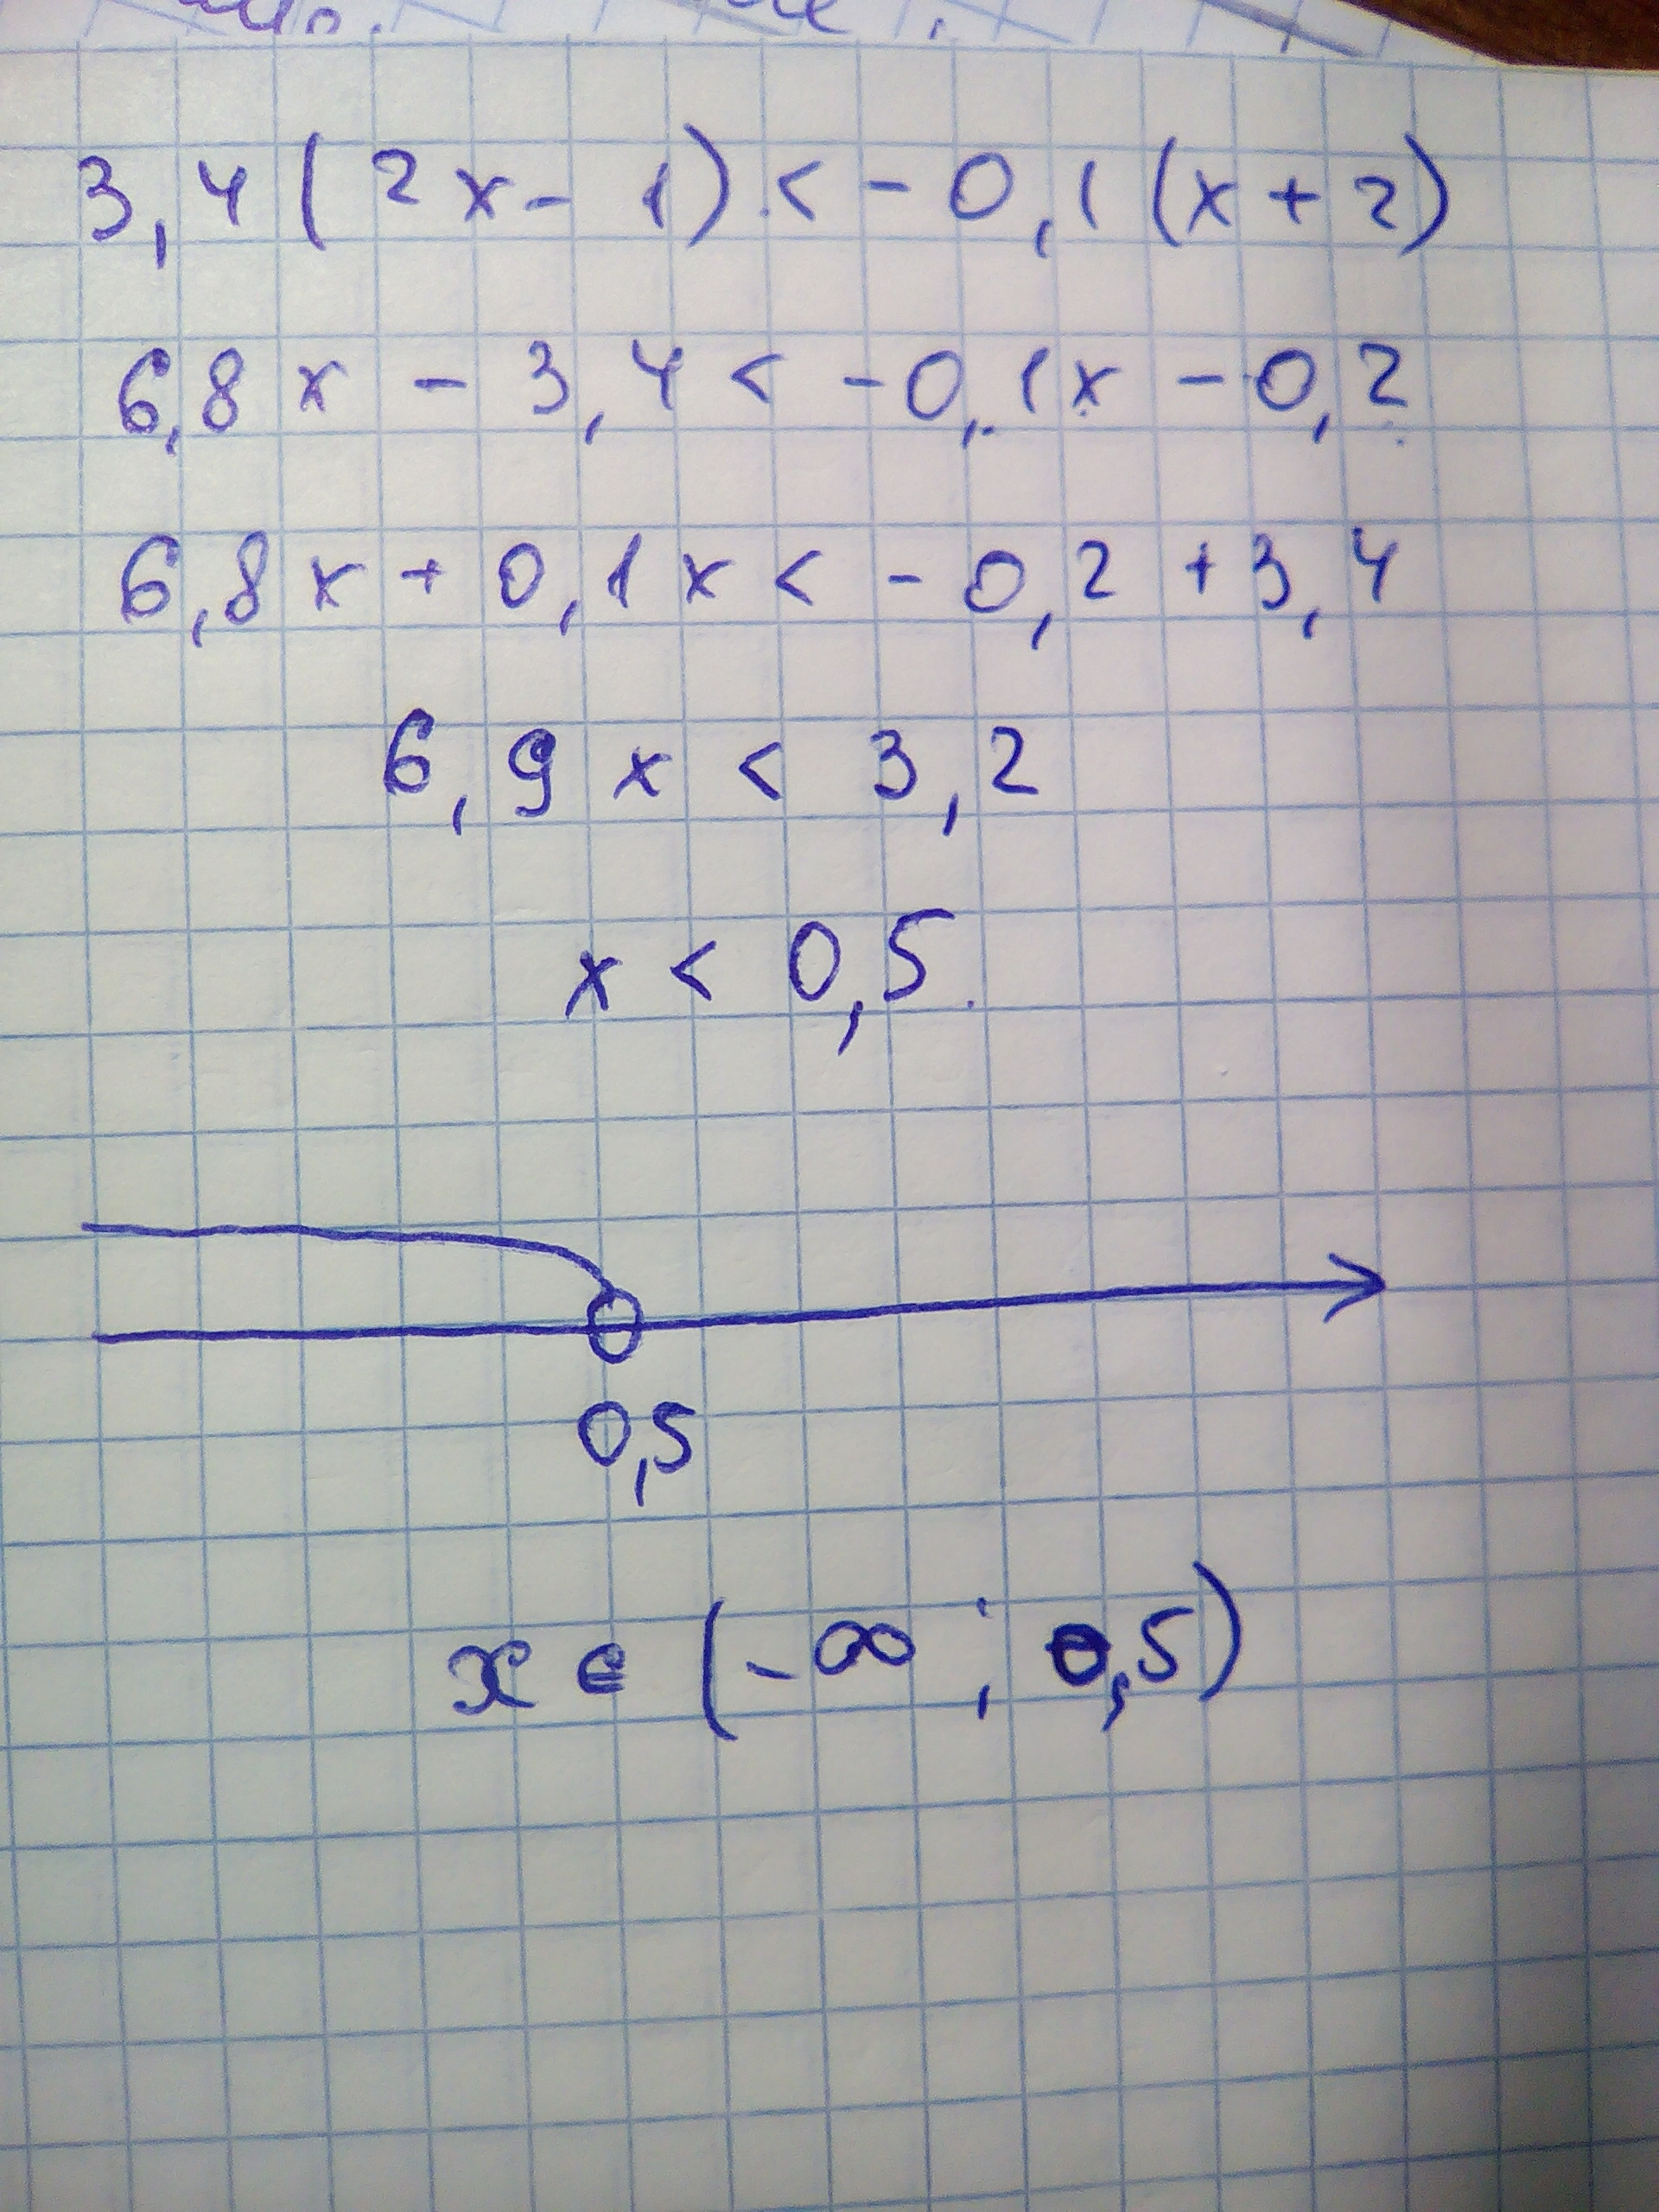 3,4(2x-1)<-0,1(x+2)
6,8x-3,4<-0,1x-0,2
6,8x+0,1x<-0,2+3,4
6,9x<3,2
x<0,5.
0,5
x∈(-∞; 0,5)